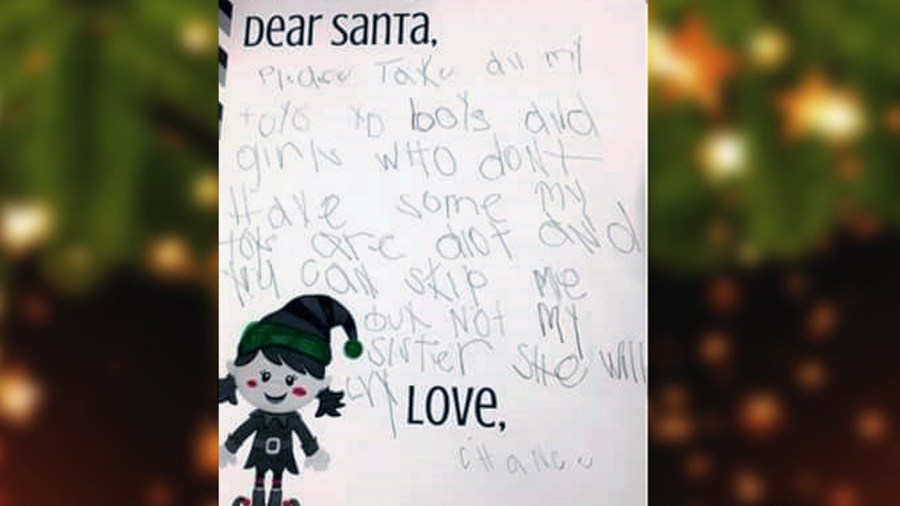 Dear Santa,
Please Take all my
toys to boys and
girls wHo dont
Have some my
toys are alot and
you can skip me
but Not my
sister she will
cry
Love,
cHance